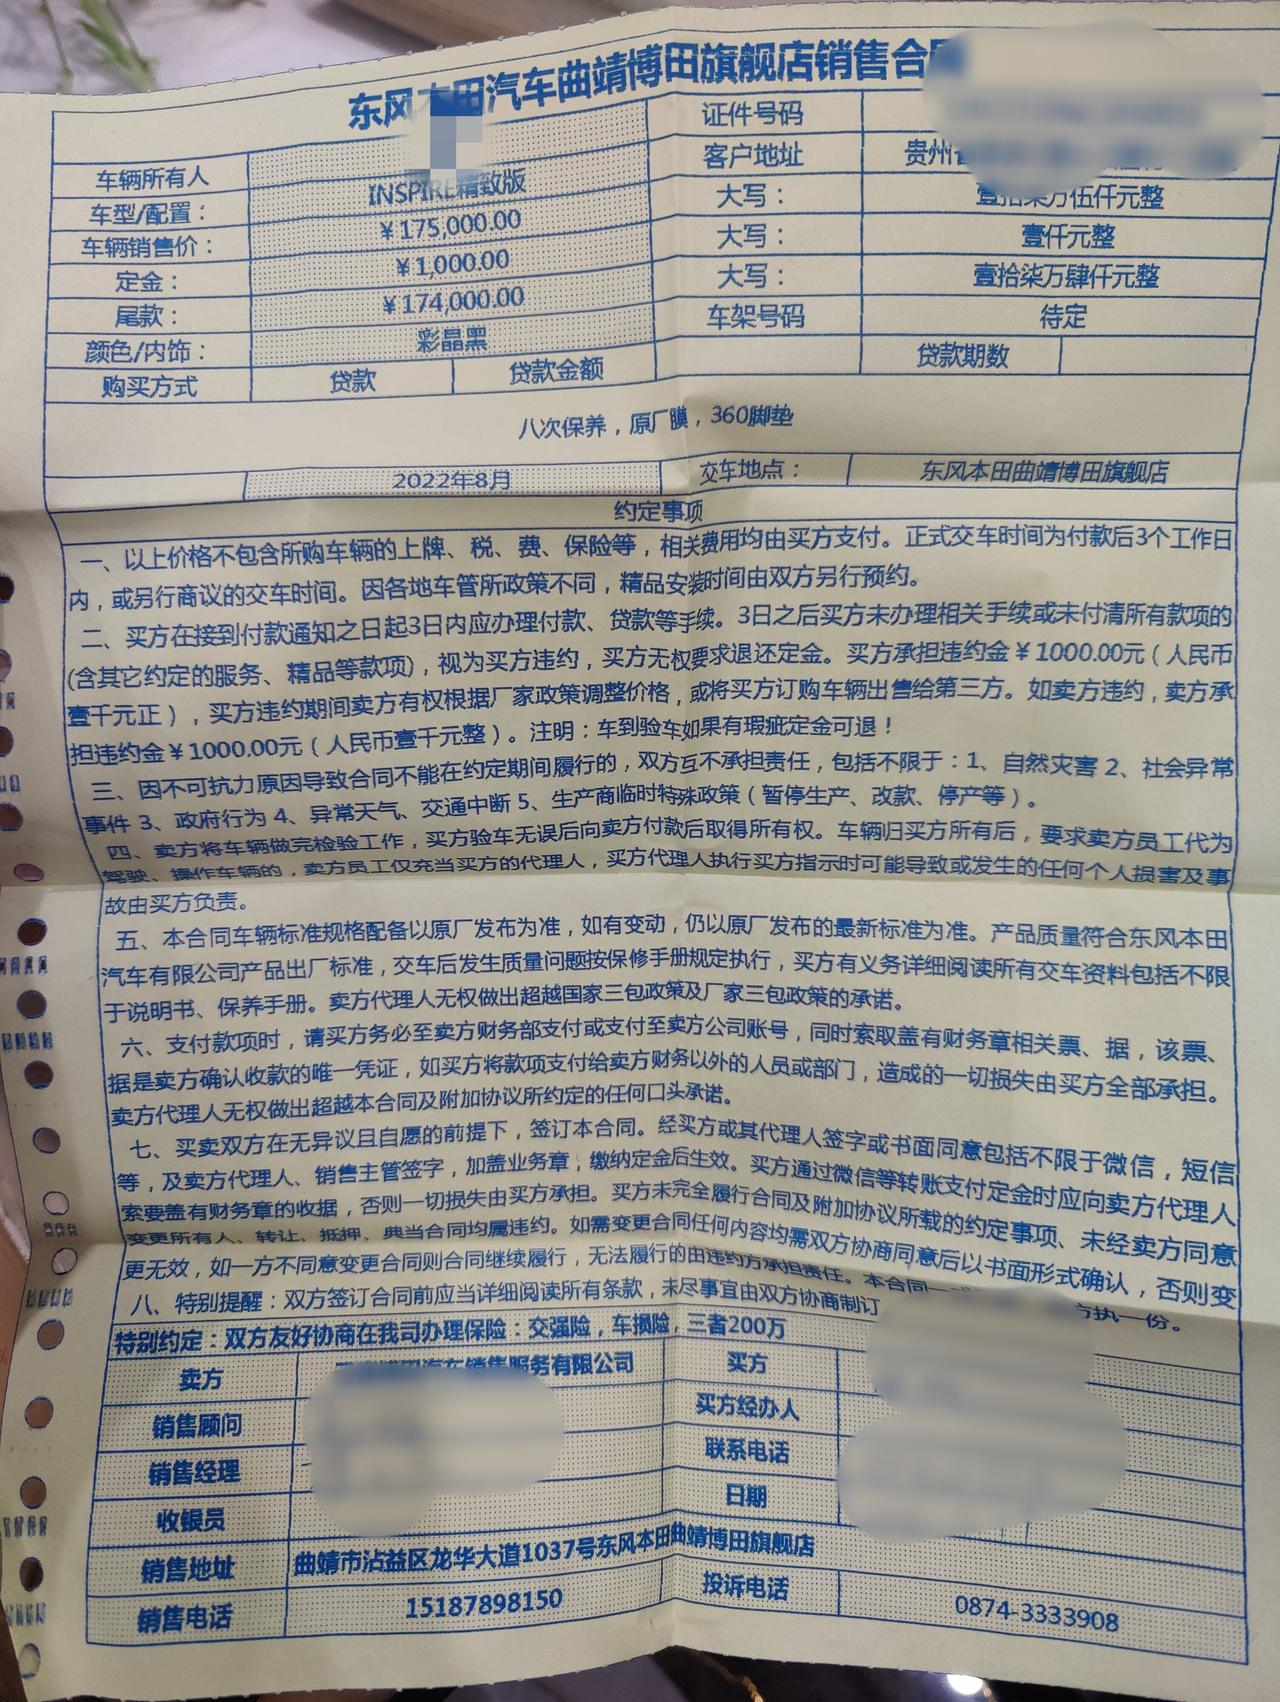 东风本田汽车曲靖博田旗舰店销售合
证件号码
车辆所有人 客户地址 贵州省
车型/配置： INSPIRE精致版 大写： 壹拾柒万伍仟元整
车辆销售价： ￥175,000.00 大写： 壹仟元整
定金： ￥1,000.00 大写： 壹拾柒万肆仟元整
尾款： ￥174,000.00 车架号码 待定
颜色/内饰： 彩晶黑 贷款期数
购买方式 贷款 贷款金额
八次保养，原厂膜，360脚垫
2022年8月 交车地点： 东风本田曲靖博田旗舰店
约定事项
一、以上价格不包含所购车辆的上牌、税、费、保险等，相关费用均由买方支付。正式交车时间为付款后3个工作日
内，或另行商议的交车时间。因各地车管所政策不同，精品安装时间由双方另行预约。
二、买方在接到付款通知之日起3日内应办理付款、贷款等手续。3日之后买方未办理相关手续或未付清所有款项的
(含其它约定的服务、精品等款项)，视为买方违约，买方无权要求退还定金。买方承担违约金￥1000.00元（人民币
壹千元正），买方违约期间卖方有权根据厂家政策调整价格，或将买方订购车辆出售给第三方。如卖方违约，卖方承
担违约金￥1000.00元（人民币壹千元整）。注明：车到验车如果有瑕疵定金可退！
三、因不可抗力原因导致合同不能在约定期间履行的，双方互不承担责任，包括不限于：1、自然灾害 2、社会异常
事件 3、政府行为 4、异常天气、交通中断 5、生产商临时特殊政策（暂停生产、改款、停产等）。
四、卖方将车辆做完检验工作，买方验车无误后向卖方付款后取得所有权。车辆归买方所有后，要求卖方员工代为
驾驶、操作车辆的，卖方员工仅充当买方的代理人，买方代理人执行买方指示时可能导致或发生的任何个人损害及事
故由买方负责。
五、本合同车辆标准规格配备以原厂发布为准，如有变动，仍以原厂发布的最新标准为准。产品质量符合东风本田
汽车有限公司产品出厂标准，交车后发生质量问题按保修手册规定执行，买方有义务详细阅读所有交车资料包括不限
于说明书、保养手册。卖方代理人无权做出超越国家三包政策及厂家三包政策的承诺。
六、支付款项时，请买方务必至卖方财务部支付或支付至卖方公司账号，同时索取盖有财务章相关票、据，该票、
据是卖方确认收款的唯一凭证，如买方将款项支付给卖方财务以外的人员或部门，造成的一切损失由买方全部承担。
卖方代理人无权做出超越本合同及附加协议所约定的任何口头承诺。
七、买卖双方在无异议且自愿的前提下，签订本合同。经买方或其代理人签字或书面同意包括不限于微信，短信
等，及卖方代理人、销售主管签字，加盖业务章，缴纳定金后生效。买方通过微信等转账支付定金时应向卖方代理人
索要盖有财务章的收据，否则一切损失由买方承担。买方未完全履行合同及附加协议所载的约定事项、未经卖方同意
变更所有人、转让、抵押、典当合同均属违约。如需变更合同任何内容均需双方协商同意后以书面形式确认，否则变
更无效，如一方不同意变更合同则合同继续履行，无法履行的由违约方承担责任。本合同一
八、特别提醒：双方签订合同前应当详细阅读所有条款，未尽事宜由双方协商制订 方执一份。
特别约定：双方友好协商在我司办理保险：交强险，车损险，三者200万
卖方 博田汽车销售服务有限公司 买方
销售顾问 买方经办人
销售经理 联系电话
收银员 日期
销售地址 曲靖市沾益区龙华大道1037号东风本田曲靖博田旗舰店
销售电话 15187898150 投诉电话 0874-3333908